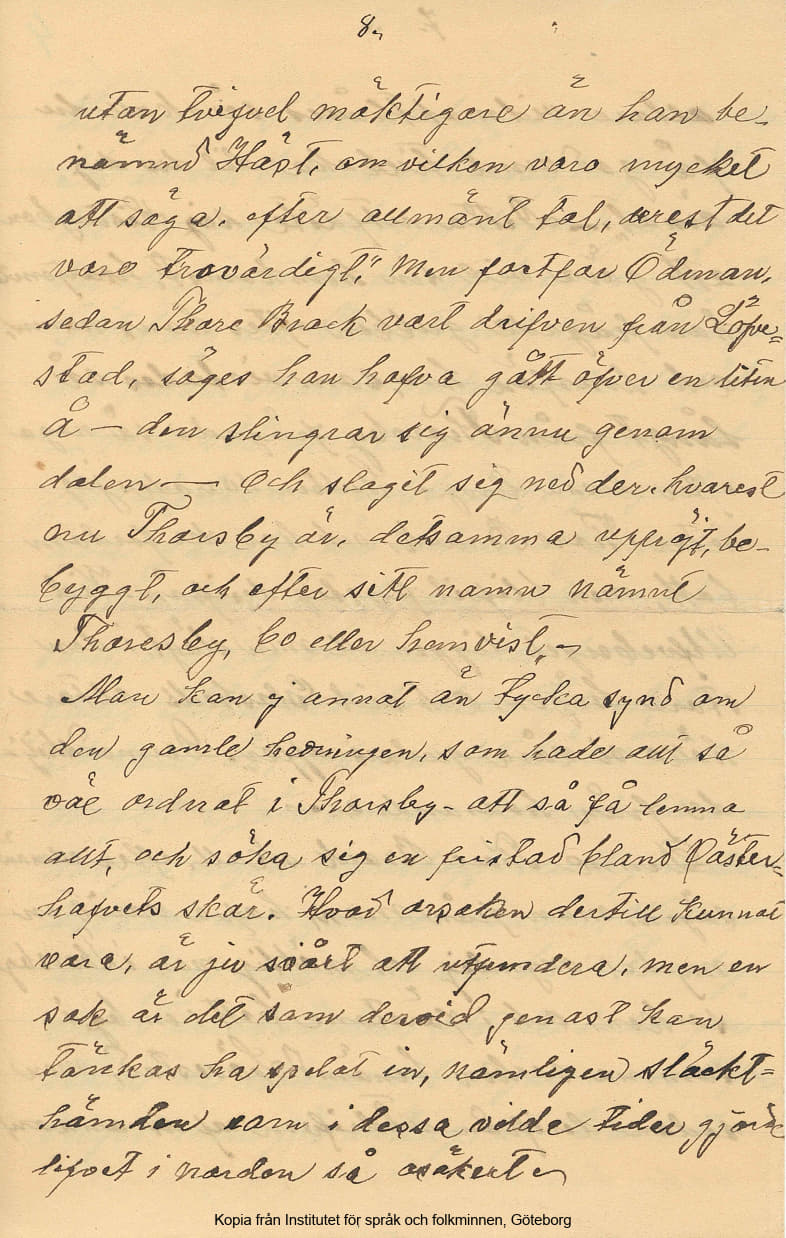 8,
utan tvifvel mäktigare än han be-
nämnd Häst, om vilken voro mycket
att säga, efter allmänt tal, vrest det
voro trovärdigt," Men fortfar Ödman,
sedan Thore Brack vart drifven från Löfve=
stad, säges han hafva gått öfver en liten
å — den slingrar sig ännu genom
dalen — och slagit sig ned der, hvarest
nu Thorsby är, detsamma upprögt, be-
byggt, och efter sitt namn nämnt
Thoresby, bo eller hemvist„ -
Man kan ej annat än tycka synd om
den gamle hedningen, som hade allt så
väl ordnat i Thorsby - att så få lemna
allt, och söka sig en fristad bland Väster-
hafvets skär. Hvad orsaken dertill kunnat
vara, är ju svårt att utfundera, men en
sak är det som dervid genast kan
tänkas ha spelat in, nämligen släckt=
hämden som i dessa vilda tider gjorde
lifvet i norden så osäkert -
Kopia från Institutet för språk och folkminnen, Göteborg